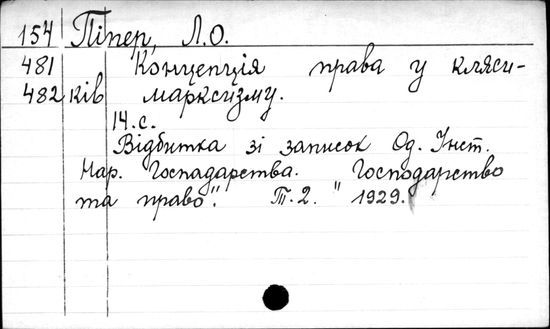 154 Піпер, Л.О.
481 Концепція права у кляси-
482 ків марксизму.
14.с.
Відбитка зі записок Од. Інст.
Нар. Господарства. "Господарство
та право". Т.2. 1929.